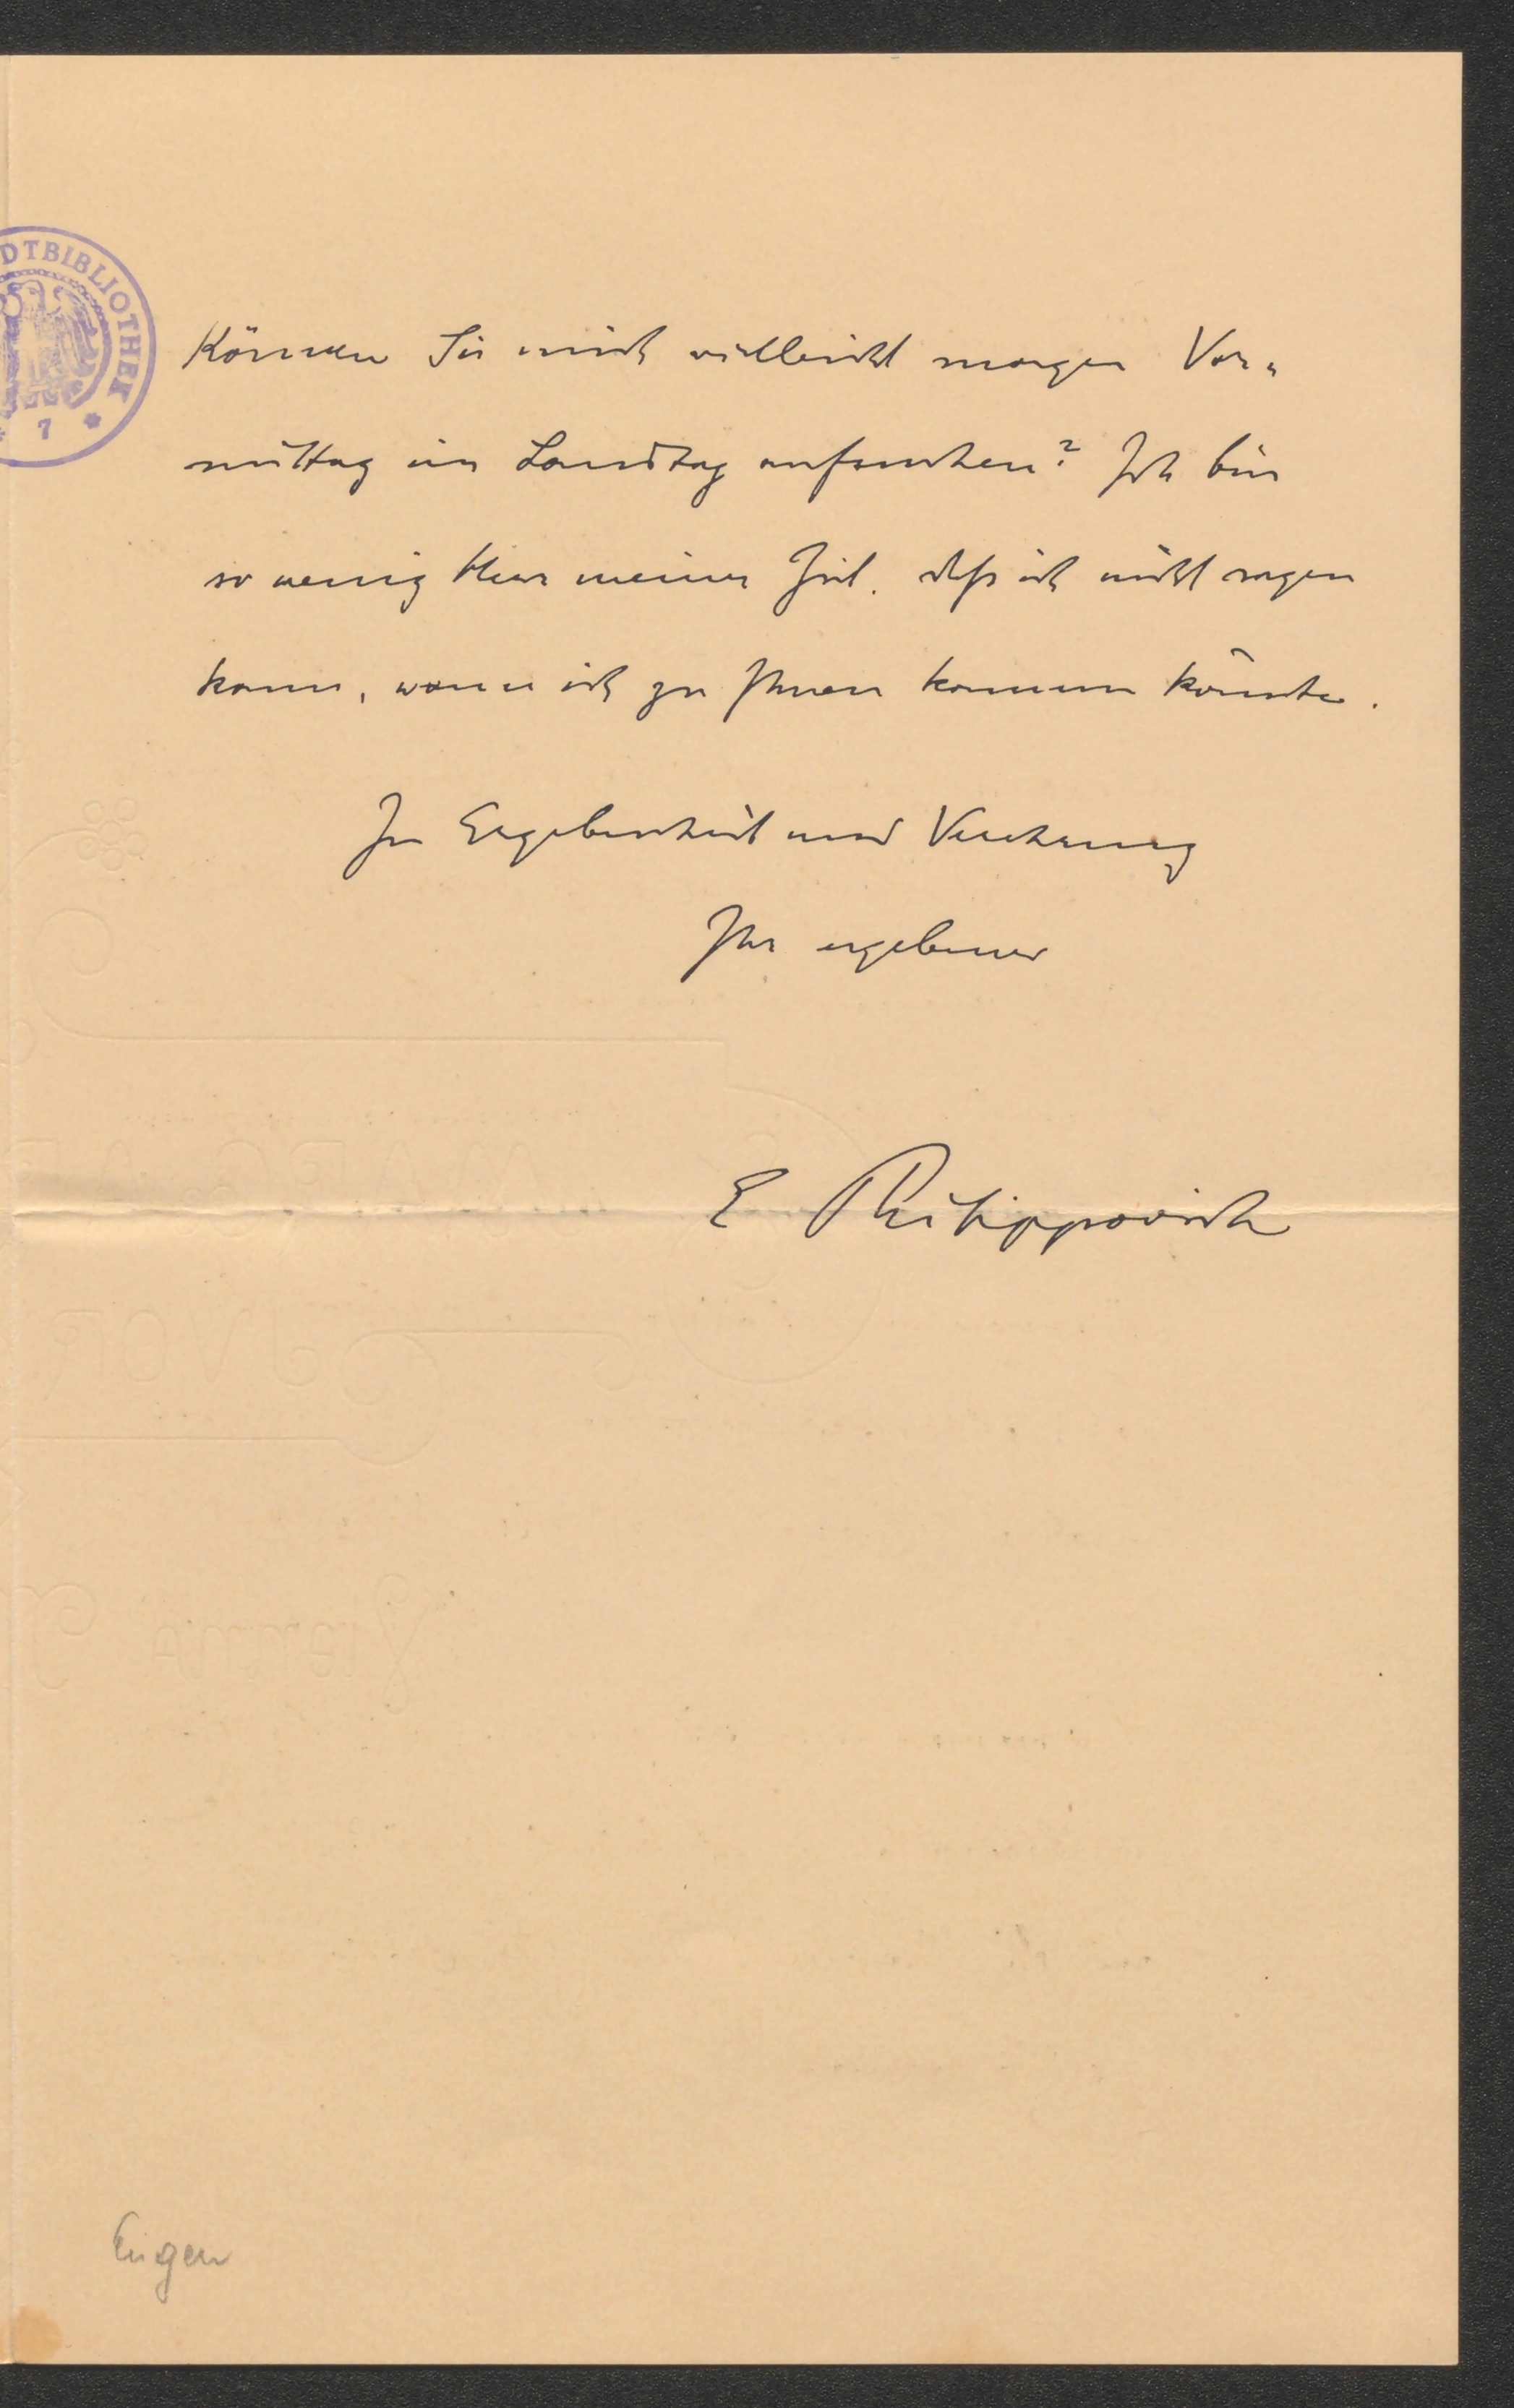 DTBIBLIOTHEK
* 7 *
Können Sie mich vielleicht morgen Vor-
mittag im Landtag aufsuchen? Ich bin
so wenig Herr meiner Zeit, dass ich nicht sagen
kann, wann ich zu Ihnen kommen könnte.
In Ergebenheit und Verehrung
Ihr ergebener
E Philippovich
Eugen